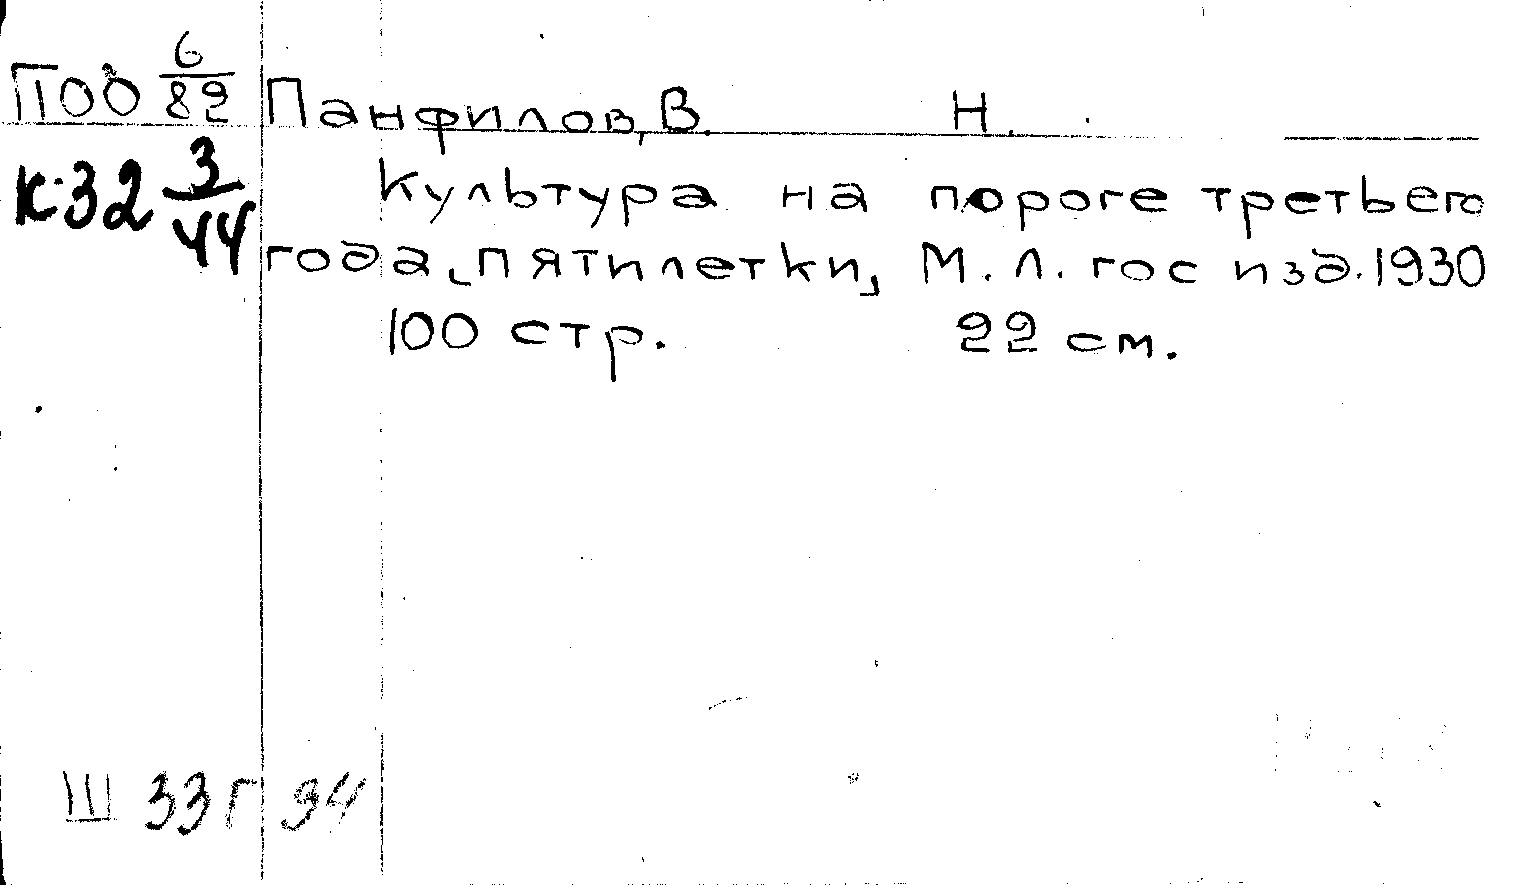 ПОО 6/82 Панфилов, В. Н.
К-32 3/44 Культура на пороге третьего
года пятилетки, М. Л. гос изд. 1930
100 стр. 22 см.
Ш 33г 94